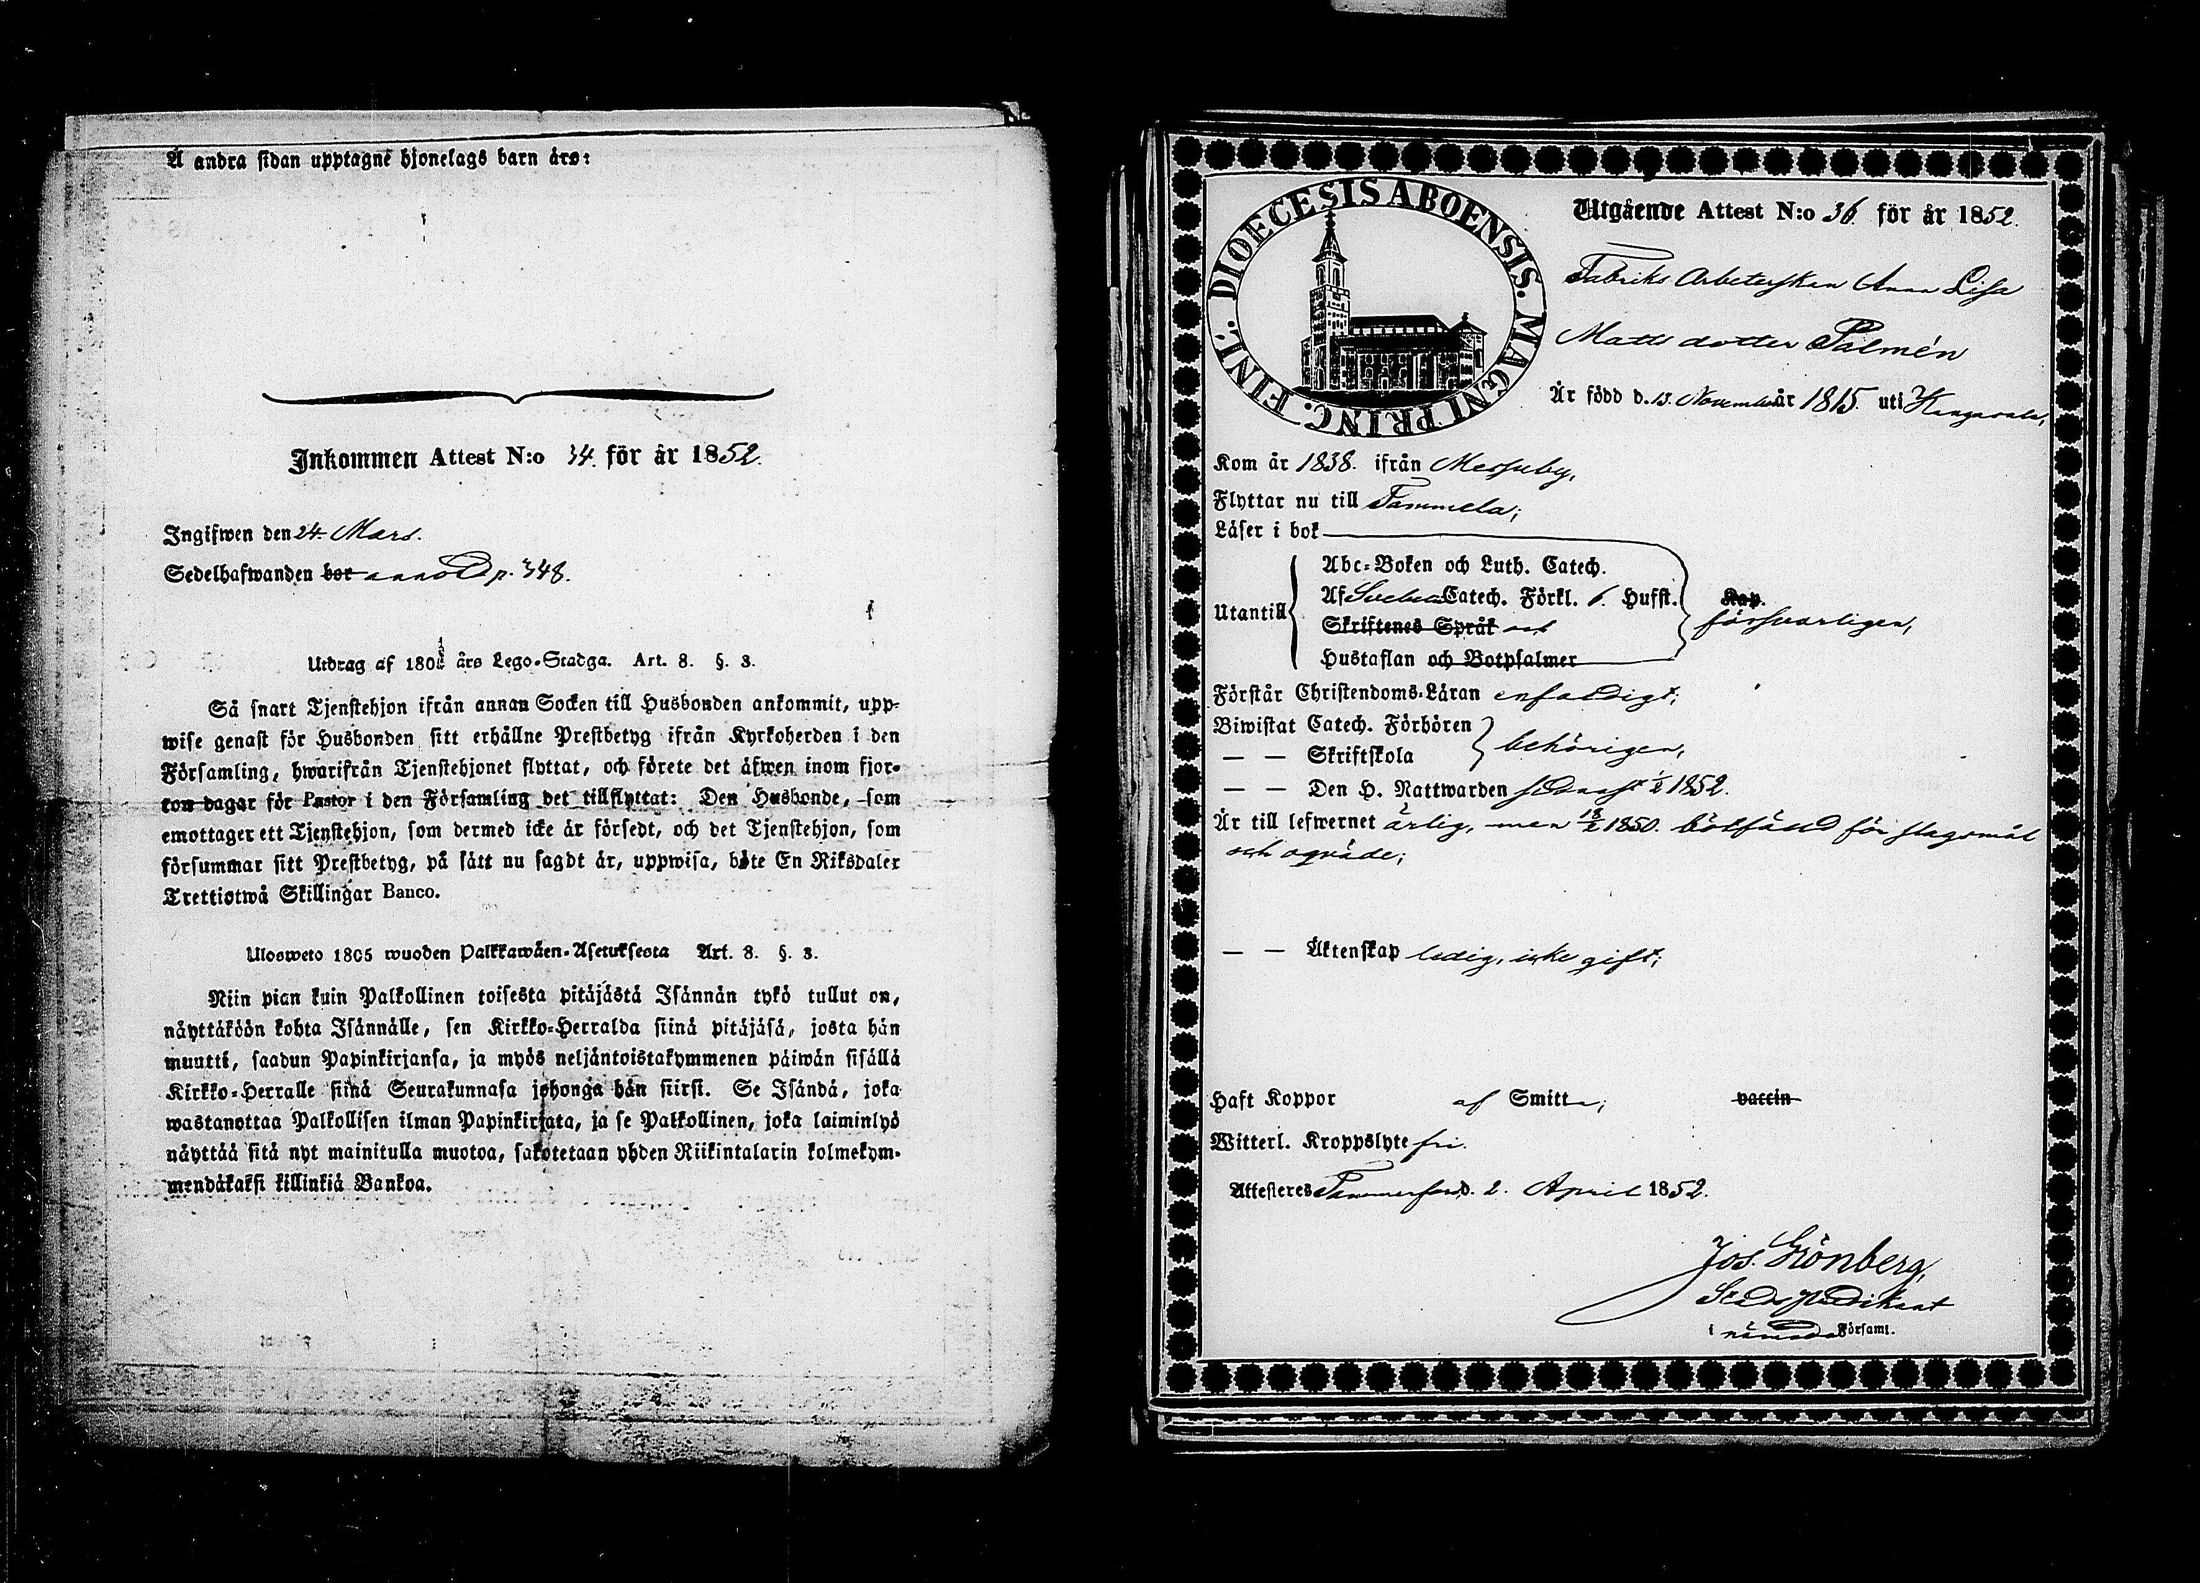 Å andra sidan upptagne hjonelags barn äro:
Inkommen Attest N:o 34. för år 1852.
Ingifwen den 24 Mars.
Sedelhafwanden bor annoD p. 348.
Utdrag af 1805 års Lego-Stadga. Art. 8. §. 3.
Så snart Tjenstehjon ifrån annan Socken till Husbonden ankommit, upp-
wise genast för Husbonden sitt erhållne Prestbetyg ifrån Kyrkoherden i den
Församling, hwarifrån Tjenstehjonet flyttat, och förete det äfwen inom fjor-
ton dagar för Pastor i den Församling det tillflyttat: Den Husbonde, som
emottager ett Tjenstehjon, som dermed icke är försedt, och det Tjenstehjon, som
försummar sitt Prestbetyg, på sätt nu sagdt är, uppwisa, böte En Riksdaler
Trettiotwå Skillingar Banco.
Ulosweto 1805 wuoden Palkkawäen-Asetuksesta Art. 8. §. 3.
Niin pian kuin Palkollinen toisesta pitäjästä Isännän tykö tullut on,
näyttäköön kohta Isännälle, sen Kirkko-Herralda siinä pitäjäsä, josta hän
muutti, saadun Papinkirjansa, ja myös neljäntoistakymmenen päiwän sisällä
Kirkko-Herralle siinä Seurakunnasa johonga hän siirsi. Se Isändä, joka
wastanottaa Palkollisen ilman Papinkirjata, ja se Palkollinen, joka laiminlyö
näyttää sitä nyt mainitulla muotoa, sakotetaan yhden Riikintalarin kolmekym-
mendäkaksi killinkiä Bankoa.
DIOECESIS ABOENSIS. MAGNI PRINC. FINL.
Utgående Attest N:o 36. för år 1852.
Fabriks Arbeterskan Anna Lisa
Matts dotter Palmén
Är född d. 13. November år 1815. uti Kangasala,
Kom år 1838. ifrån Messuby,
Flyttar nu till Tammela;
Läser i bok
Utantill
Abc-Boken och Luth. Catech.
Af Svebelii Catech. Förkl. 6. Hufst. Kap.
Skriftenes Språk och
försvarligen,
Hustaflan och Botpsalmer
Förstår Christendoms-Läran enfaldigt;
Biwistat Catech. Förhören
— — Skriftskola
behörigen,
— — Den H. Nattwarden sednast 1/2 1852.
Är till lefwernet ärlig, men 18/2 1850. bötfäld för slagsmål
och oqväde;
— — Äktenskap ledig, icke gift;
Haft Koppor af Smitta; vaccin
Witterl. Kroppslyte fri.
Attesteres Tammerfors d. 2. April 1852.
Jos. Grönberg,
Stads Predikant
i nämnda Församl.